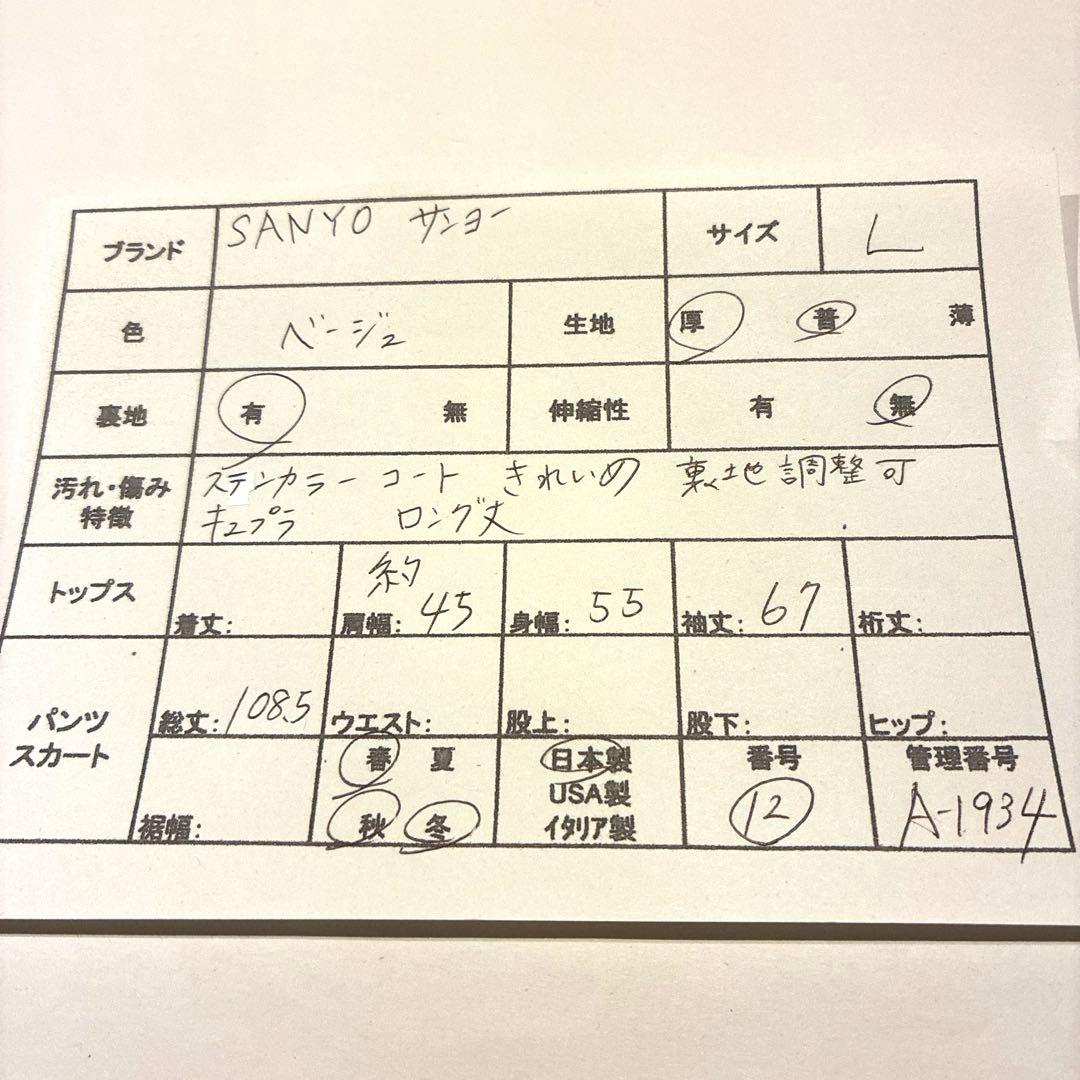 ブランド SANYO サンヨー サイズ L
色 ベージュ 生地 厚 普 薄
裏地 有 無 伸縮性 有 無
汚れ・傷み ステンカラー コート きれいめ 裏地調整可
特徴 キュプラ ロング丈
トップス 着丈: 肩幅: 約45 身幅: 55 袖丈: 67 裄丈:
パンツ 総丈: 108.5 ウエスト: 股上: 股下: ヒップ:
スカート 裾幅: 春 夏 日本製 番号 管理番号
USA製
秋 冬 イタリア製 12 A-1934